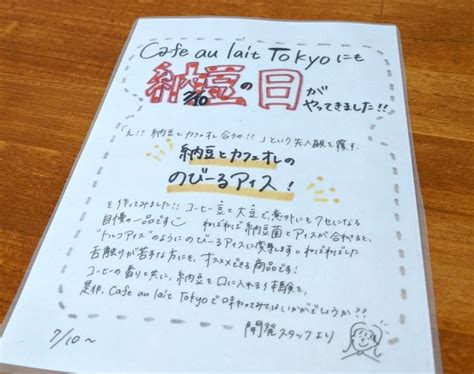 Cafe au lait Tokyo にも
納豆の日が
7/10
やってきました!!
「え!! 納豆とカフェオレ合うの!!」という先入観を覆す
納豆とカフェオレの
のびーるアイス！
を作ってみました!! コーヒー豆と大豆で、意外にもクセになる
自慢の一品です ねばねば納豆菌とアイスが合わさると、
"トルコアイス"のようにのびーるアイスに変身します。ねばねばした
舌触りが苦手な方にも、オススメできる商品です!
コーヒーの香りと共に、納豆を口に入れる体験を、
是非、Cafe au lait Tokyoで味わってみてはいかがでしょうか??
開発スタッフより
7/10～